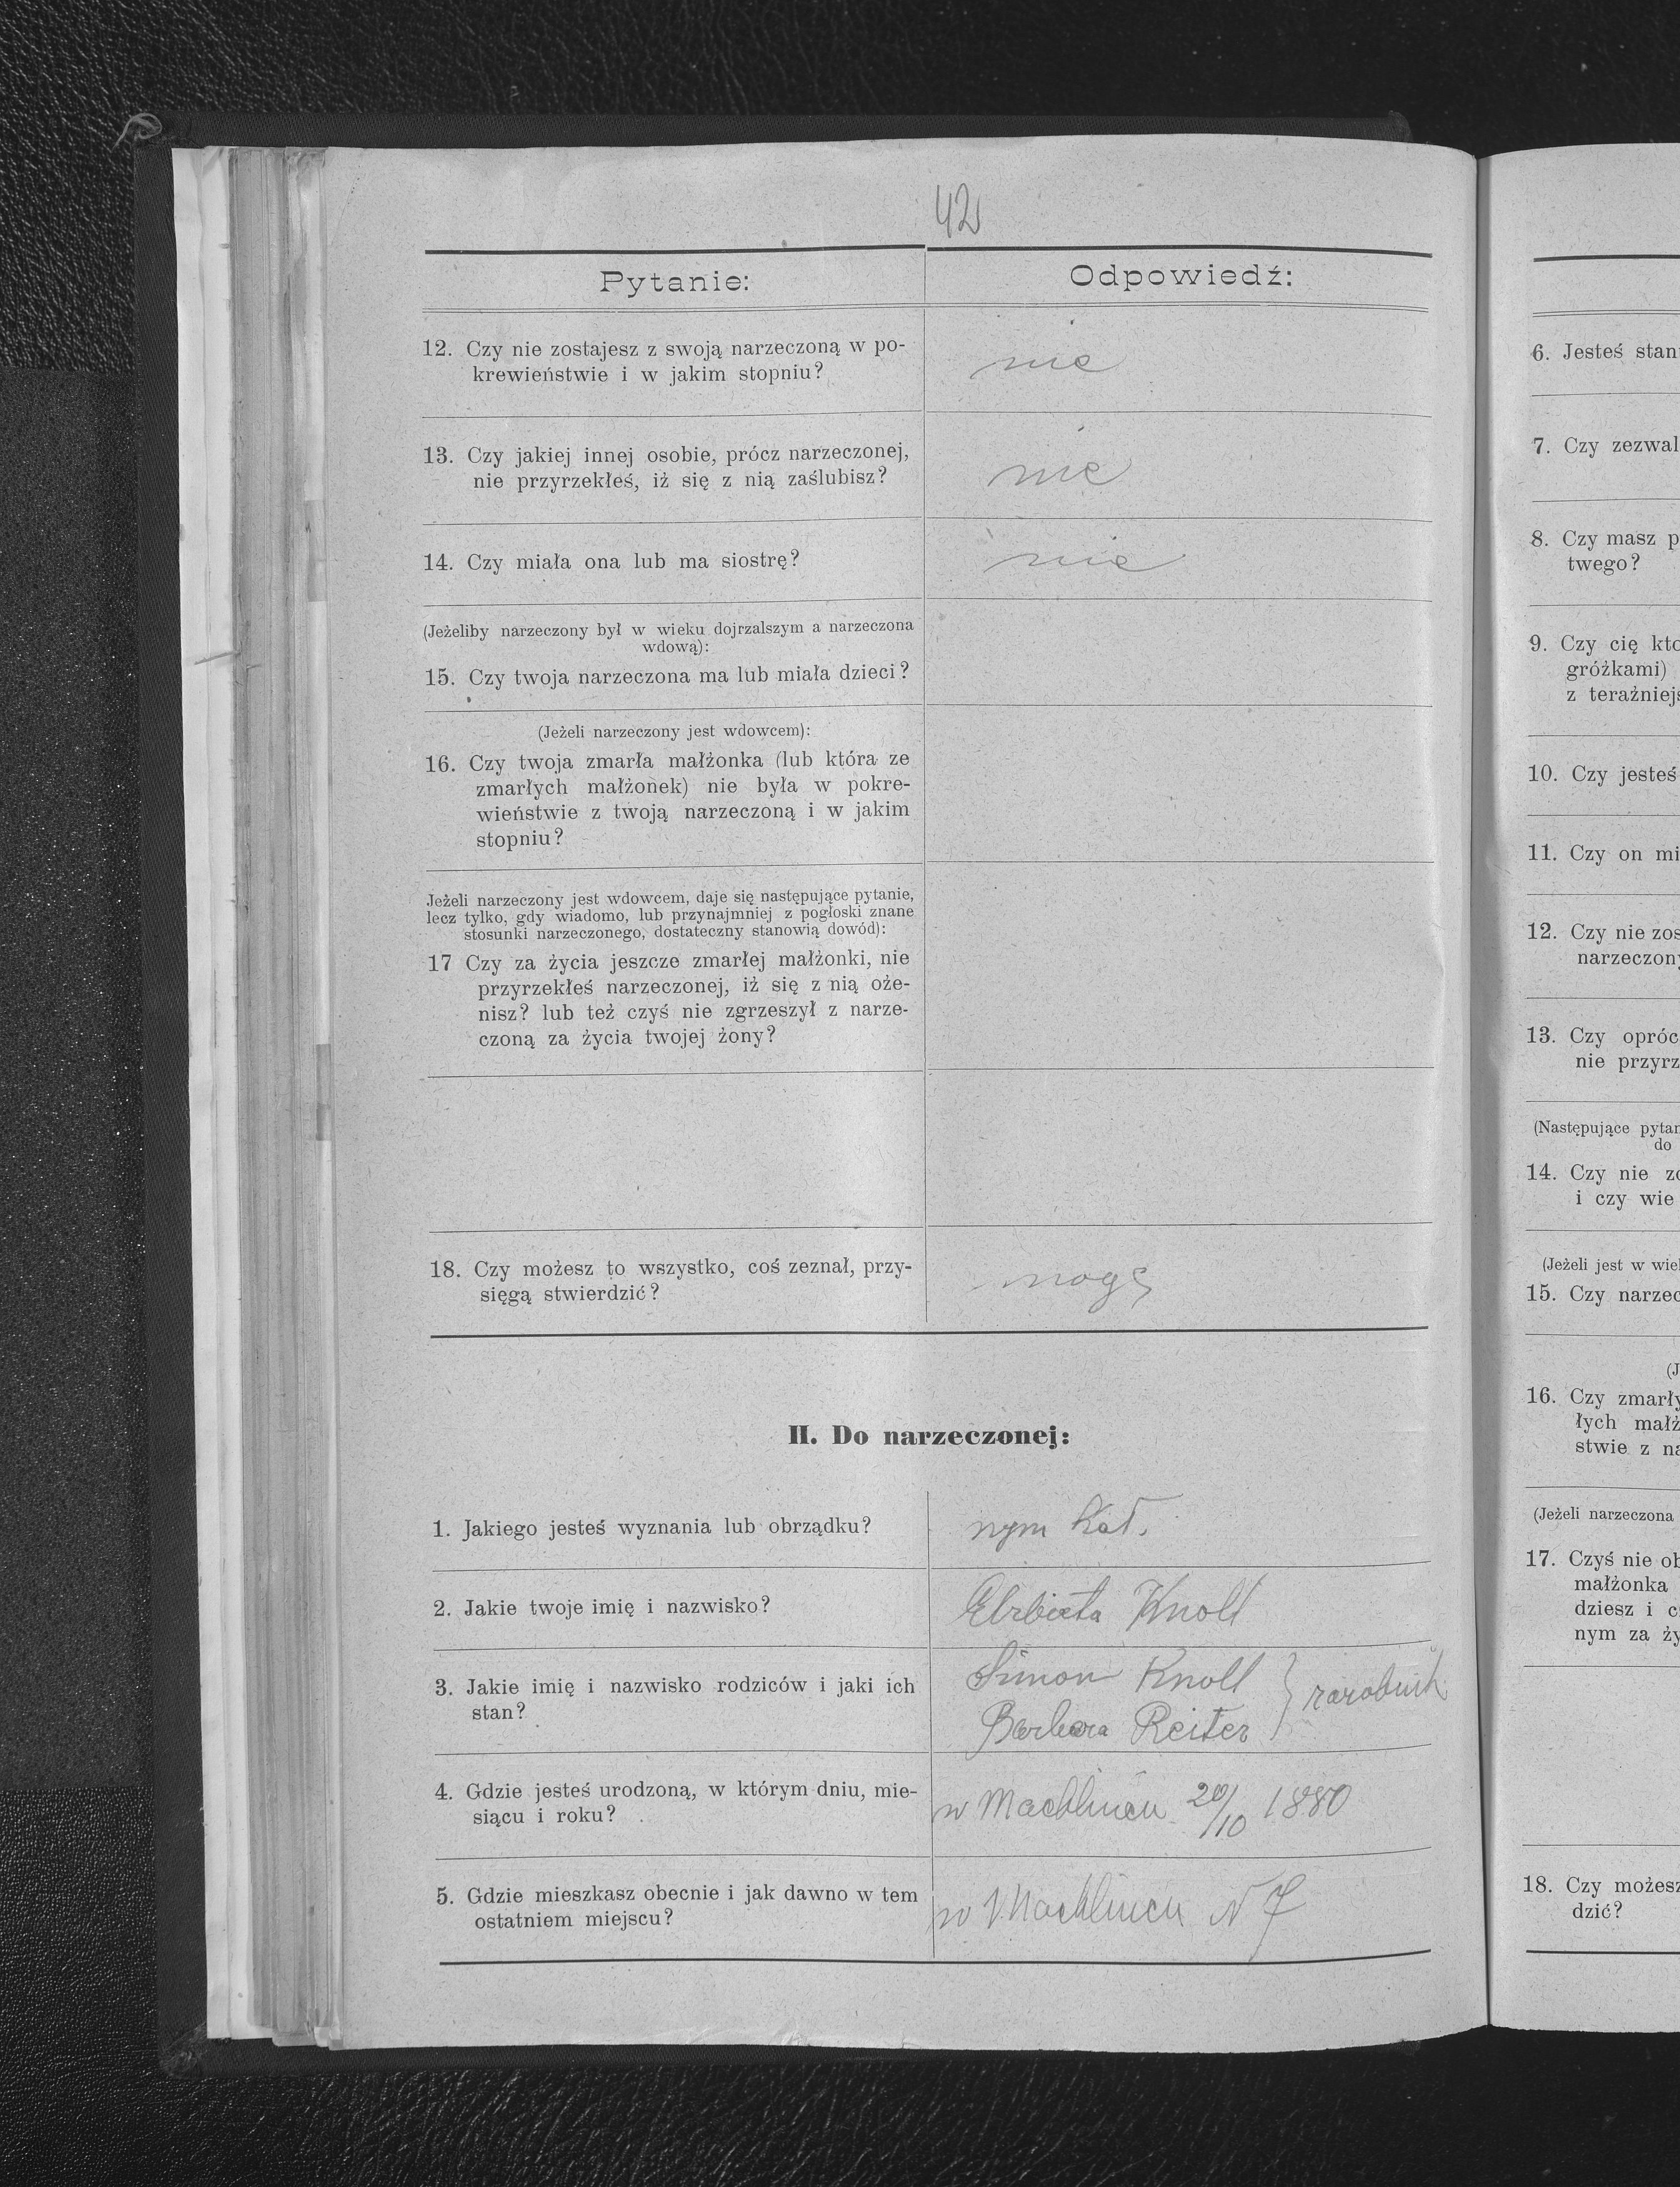 42
Pytanie:
Odpowiedź:
12. Czy nie zostajesz z swoją narzeczoną w po-
krewieństwie i w jakim stopniu?
nie
13. Czy jakiej innej osobie, prócz narzeczonej,
nie przyrzekłeś, iż się z nią zaślubisz?
nie
14. Czy miała ona lub ma siostrę?
nie
(Jeżeliby narzeczony był w wieku dojrzalszym a narzeczona
wdową):
15. Czy twoja narzeczona ma lub miała dzieci?
(Jeżeli narzeczony jest wdowcem):
16. Czy twoja zmarła małżonka (lub która ze
zmarłych małżonek) nie była w pokre-
wieństwie z twoją narzeczoną i w jakim
stopniu?
Jeżeli narzeczony jest wdowcem, daje się następujące pytanie,
lecz tylko, gdy wiadomo, lub przynajmniej z pogłoski znane
stosunki narzeczonego, dostateczny stanowią dowód):
17 Czy za życia jeszcze zmarłej małżonki, nie
przyrzekłeś narzeczonej, iż się z nią oże-
nisz? lub też czyś nie zgrzeszył z narze-
czoną za życia twojej żony?
18. Czy możesz to wszystko, coś zeznał, przy-
sięgą stwierdzić?
mogę
II. Do narzeczonej:
1. Jakiego jesteś wyznania lub obrządku?
rzym kat.
2. Jakie twoje imię i nazwisko?
Elżbieta Knoll
3. Jakie imię i nazwisko rodziców i jaki ich
stan?
Simon Knoll
Barbara Reiter } zarobnik
4. Gdzie jesteś urodzoną, w którym dniu, mie-
siącu i roku?
w Machlincu 20/10 1880
5. Gdzie mieszkasz obecnie i jak dawno w tem
ostatniem miejscu?
w Machlincu N 7
6. Jesteś stan
7. Czy zezwal
8. Czy masz p
twego?
9. Czy cię kto
gróżkami)
z teraźniejs
10. Czy jesteś
11. Czy on mi
12. Czy nie zos
narzeczony
13. Czy opróc
nie przyrz
(Następujące pytan
do
14. Czy nie zo
i czy wie
(Jeżeli jest w wiek
15. Czy narzec
(J
16. Czy zmarły
łych małż
stwie z na
(Jeżeli narzeczona
17. Czyś nie ob
małżonka
dziesz i c
nym za ży
18. Czy możesz
dzić?